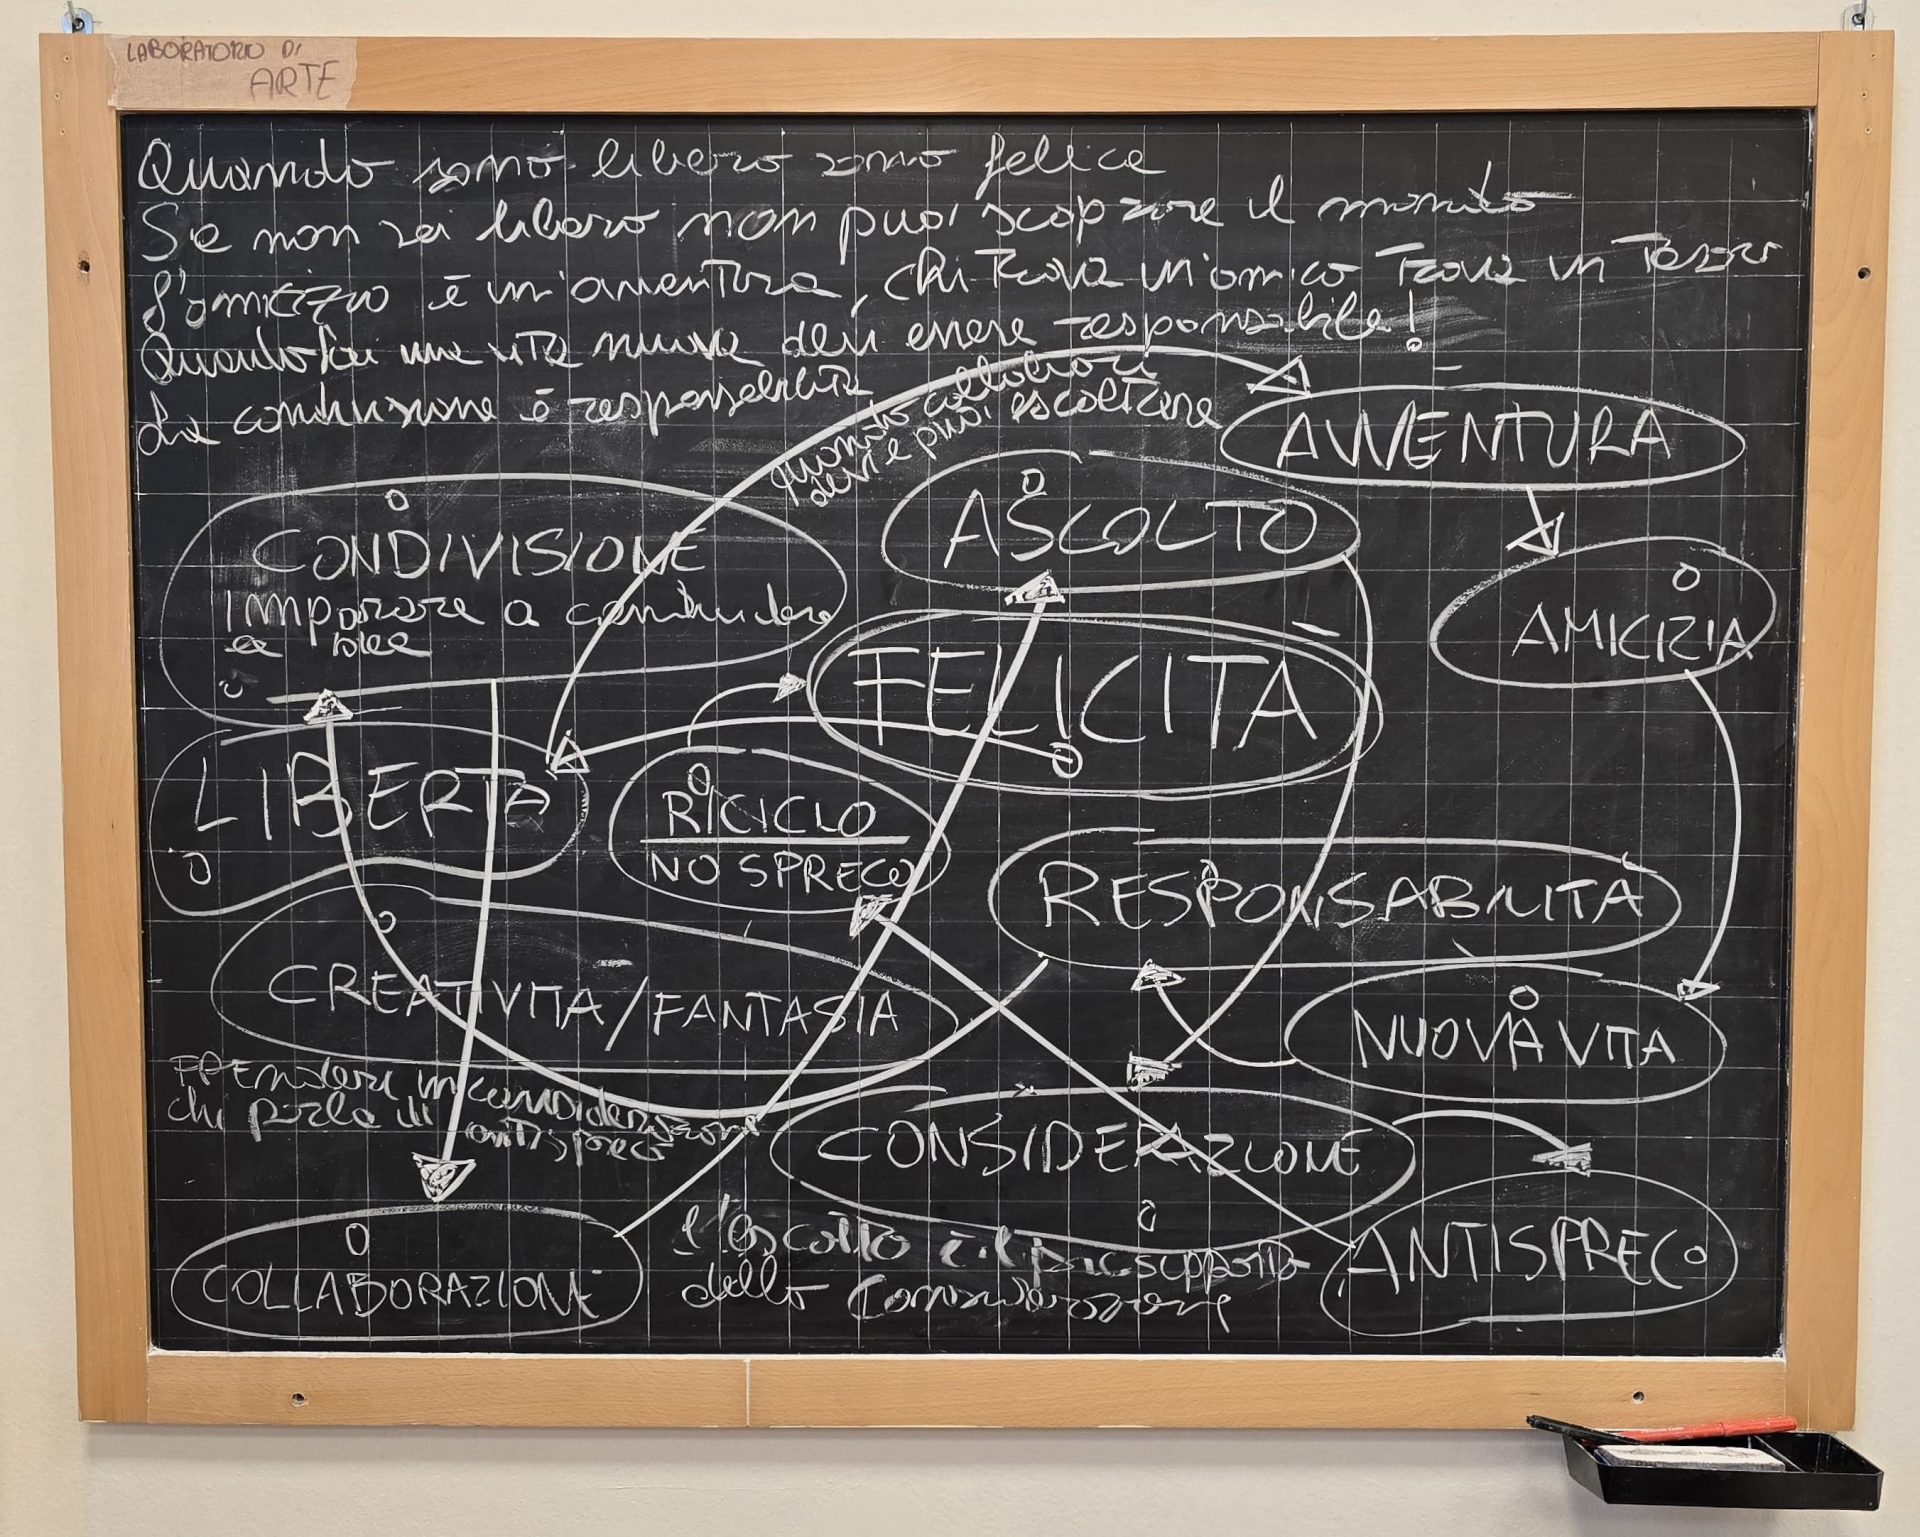 LABORATORIO DI
ARTE
Quando sono libero sono felice
Se non sei libero non puoi scoprire il mondo
L'amicizia è un'avventura, chi trova un'amico trova un tesoro
Quando fai una vita nuova devi essere responsabile!
La condivisione è responsabilità
quando collabori
devi e puoi ascoltare
AVVENTURA
ASCOLTO
CONDIVISIONE
IMPARARE A condividere
le idee
AMICIZIA
FELICITÀ
LIBERTÀ
RICICLO
NO SPRECO
RESPONSABILITÀ
CREATIVITÀ/FANTASIA
NUOVA VITA
PRENDERE in considerazione
chi parla di antispreco
CONSIDERAZIONE
L'ascolto è il presupposto
della Considerazione
ANTISPRECO
COLLABORAZIONE